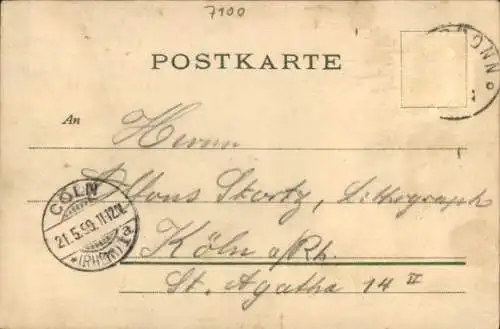 7100
POSTKARTE
BONN
An Herrn
Alfons Skortz, Lithograph
Köln a/Rh.
St. Agatha 14 II
CÖLN
21.5.99.11-12V.
*(RHEIN) 1a